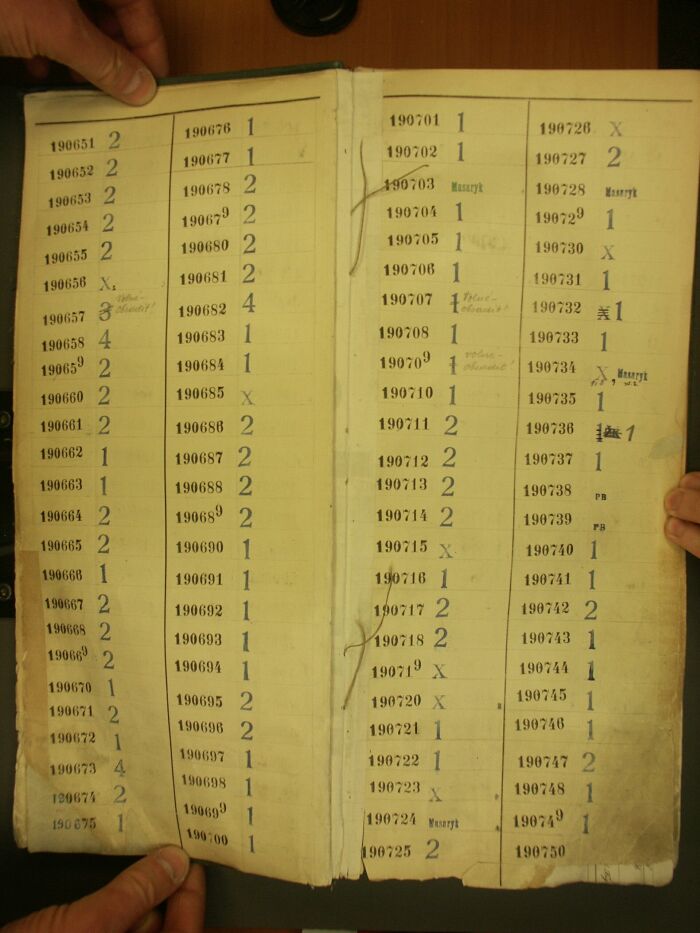 190651 2
190652 2
190653 2
190654 2
190655 2
190656 X.
190657 3 Volné - obsadit!
190658 4
190659 2
190660 2
190661 2
190662 1
190663 1
190664 2
190665 2
190666 1
190667 2
190668 2
190669 2
190670 1
190671 2
190672 1
190673 4
190674 2
190675 1
190676 1
190677 1
190678 2
190679 2
190680 2
190681 2
190682 4
190683 1
190684 1
190685 X
190686 2
190687 2
190688 2
190689 2
190690 1
190691 1
190692 1
190693 1
190694 1
190695 2
190696 2
190697 1
190698 1
190699 1
190700 1
190701 1
190702 1
190703 Masaryk
190704 1
190705 1
190706 1
190707 1 Volné - obsadit!
190708 1
190709 1 volné - obsadit!
190710 1
190711 2
190712 2
190713 2
190714 2
190715 X
190716 1
190717 2
190718 2
190719 X
190720 X
190721 1
190722 1
190723 X
190724 Masaryk
190725 2
190726 X
190727 2
190728 Masaryk
190729 1
190730 X
190731 1
190732 X 1
190733 1
190734 X, Masaryk
190735 1
190736 1
190737 1
190738 PB
190739 PB
190740 1
190741 1
190742 2
190743 1
190744 1
190745 1
190746 1
190747 2
190748 1
190749 1
190750